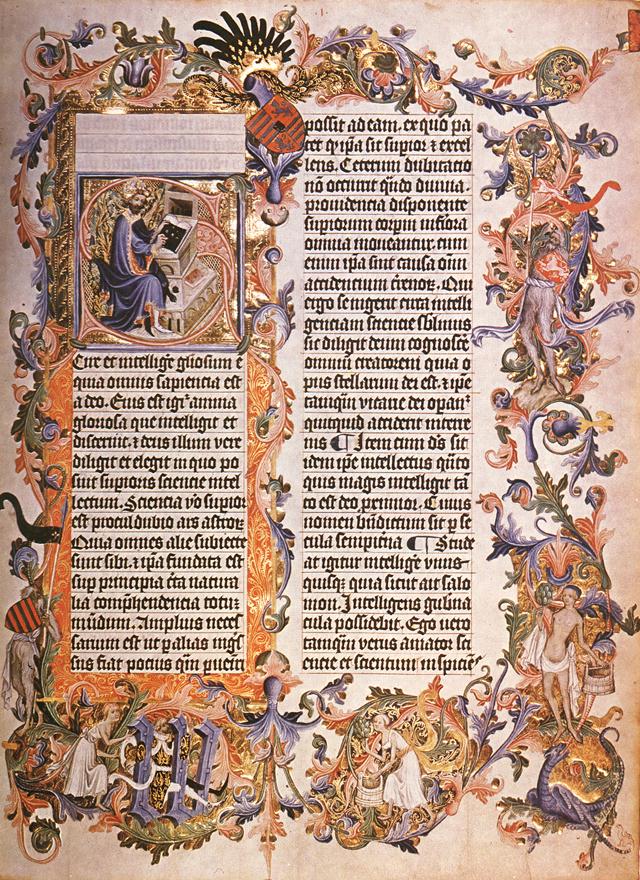 Cire et intellige͛ gliosum ē
quia omnis sapiencia est
a deo. Eius est igr̄ anima
gloriosa que intelligit et
discernit. ⁊ deus illum vere
diligit et elegit in quo po
suit supioris sciencie intel
lectum. Sciencia vo supior
est procul dubio ars astroꝝ
Quia omnes alie subiecte
sunt sibi. ⁊ ipa fundata est
sup principia cta natura
lia comphendencia totuz
mudum. Amplius neces
sarium est ut p alias
fiat pocius qm pueri
possit ad eam. ex quo pa
tet qr ipa sit supior ⁊ excel
lens. Ceterum dubitacio
no occurrit quido diuina
prouidencia disponente
supiorum corpin inferiora
omnia moueantur. cum
enim ipa sint causa oim
accidencium Qui
ergo se nigerit cura intelli
genciam sciencie sblimis
sic diligit deum cognosce͛
omniu creatorem quia o
pus stellarum dei est. ⁊ ipe
tamqm vitane dei opan
quitquid accidunt interre
nis ¶ Item cum ds sit
idem ipe intellectus qnto
quis magis intelligit ta
to est deo pximior. Cuius
nomen bndictum sit p se
cula sempitna ¶ Stude
at igitur intellige͛ vnus
quisqz quia sicut ait salo
mon. Intelligens gubna
cula possidebit. Ego vero
tamqm verus amator sci
encie et scientum inspicie